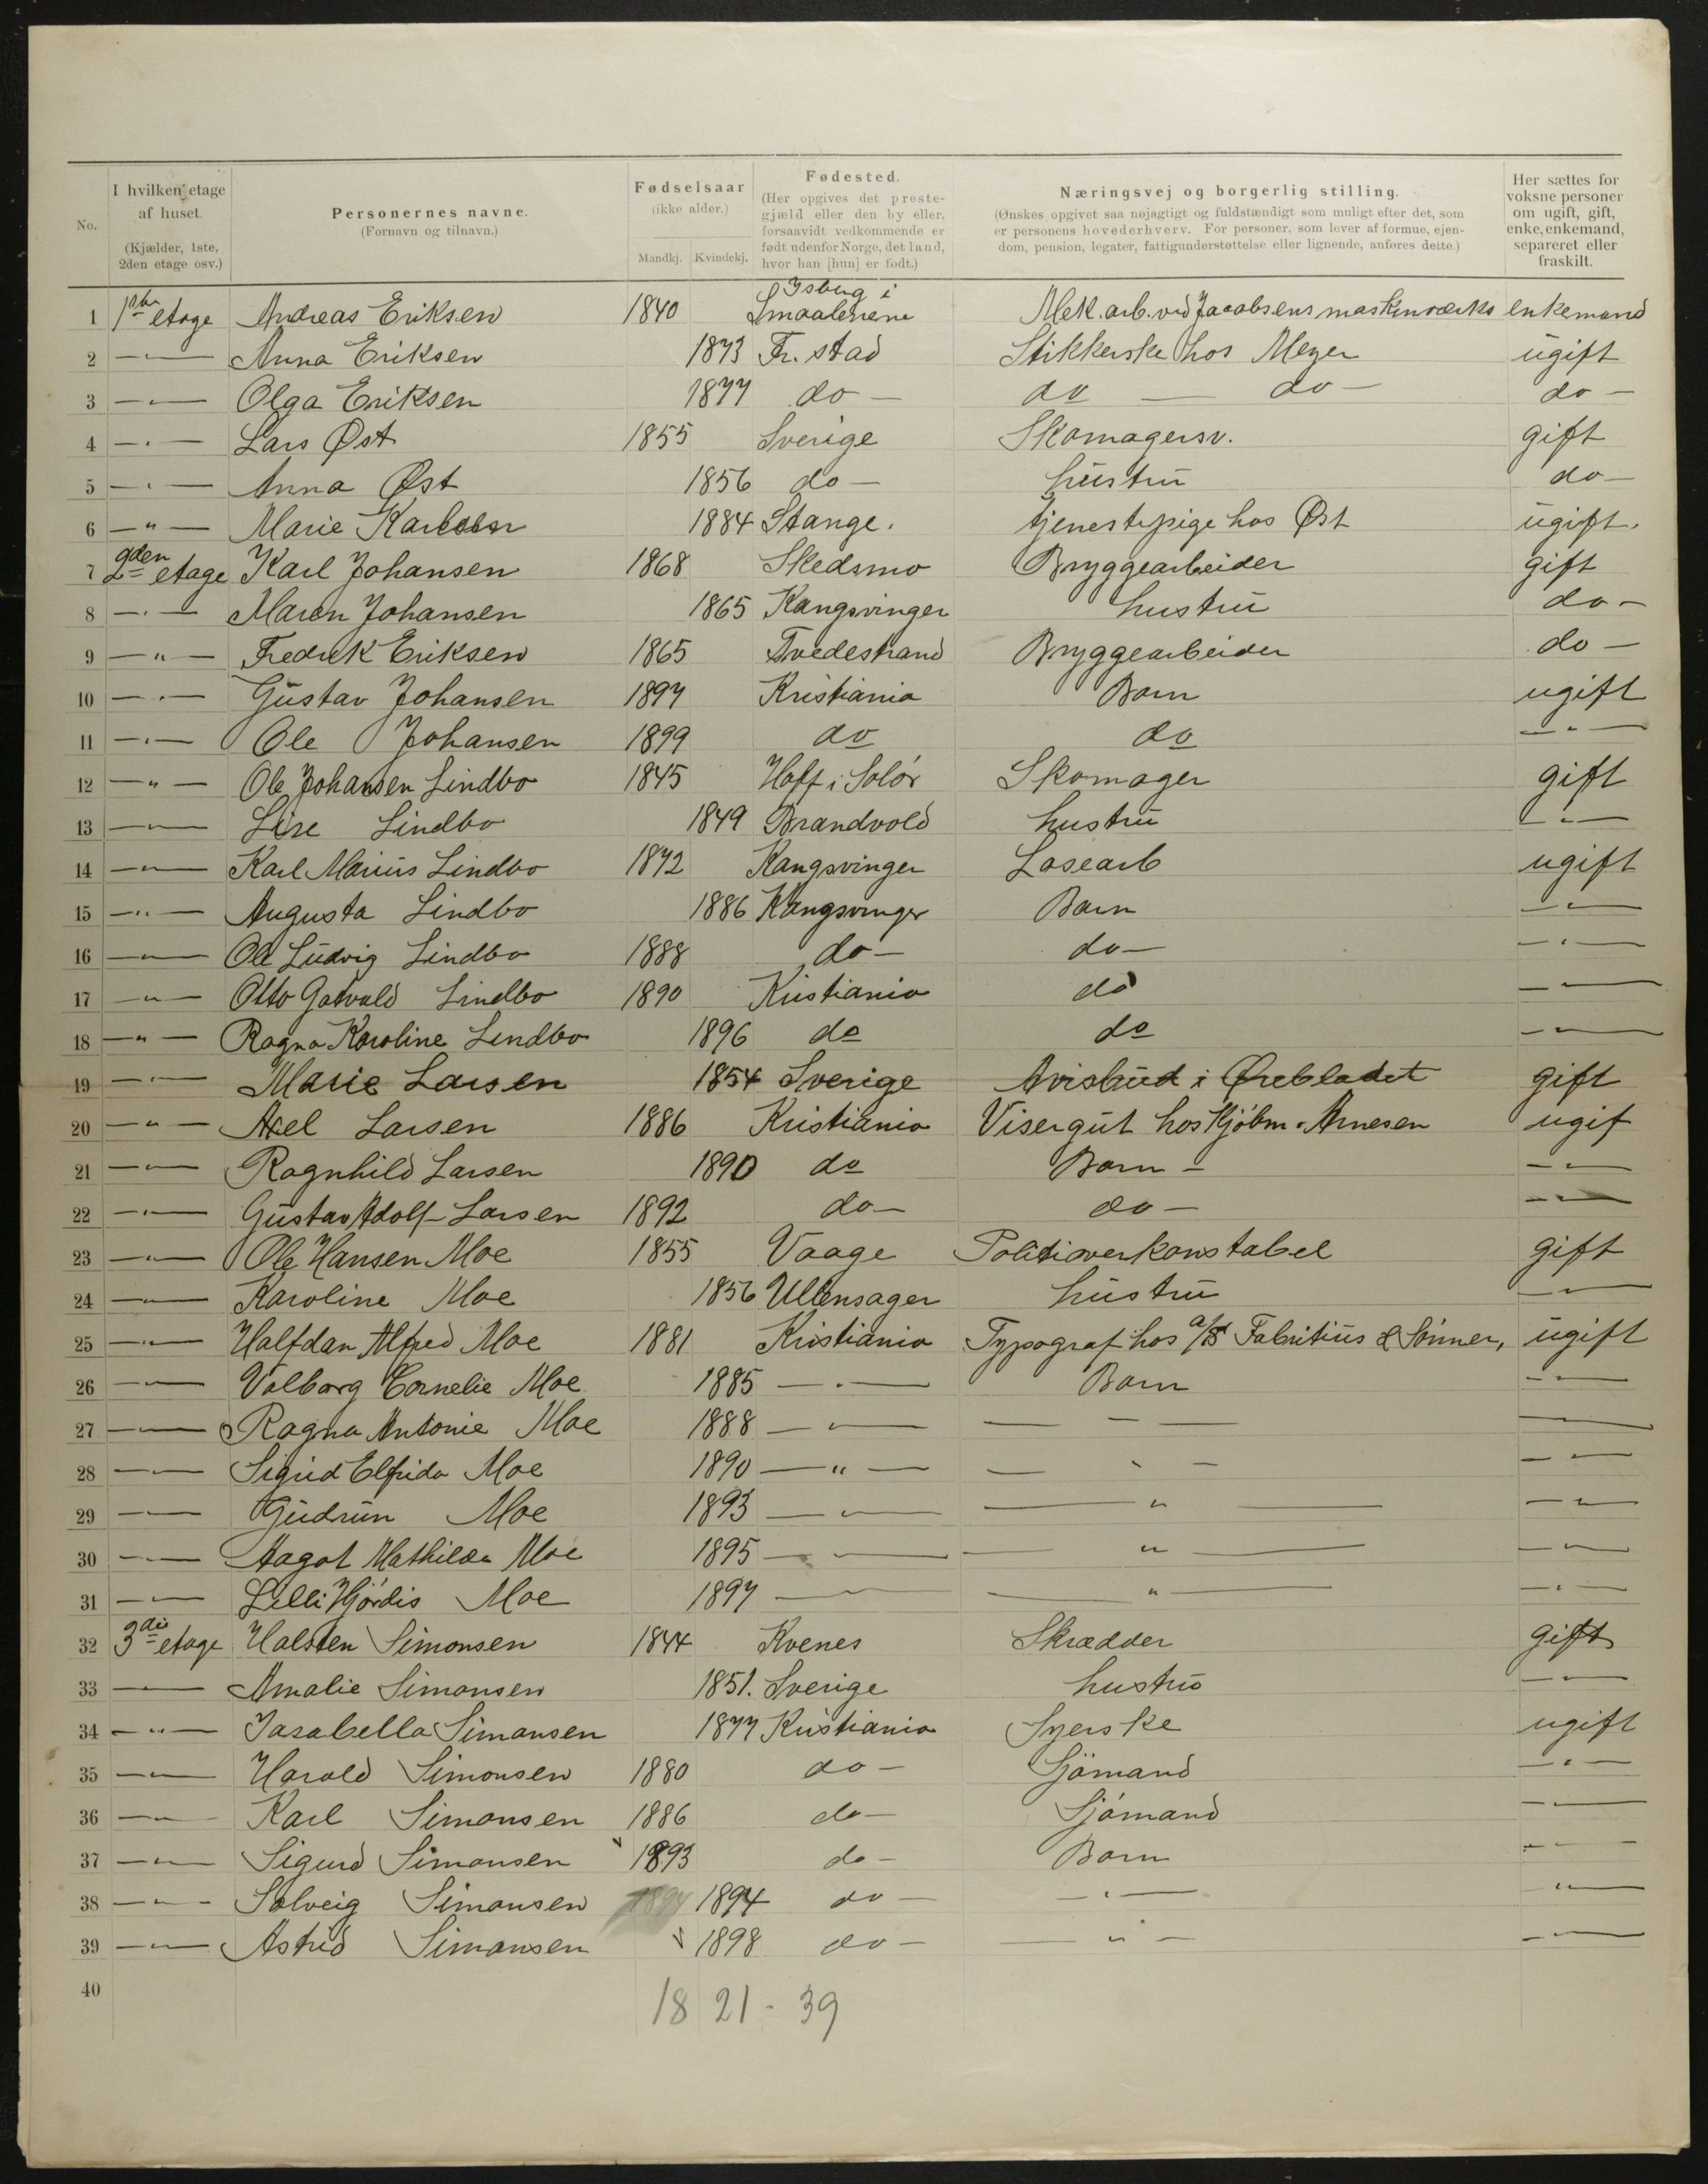 No.
I hvilken etage af huset. (Kjælder, 1ste, 2den etage osv.)
Personernes navne. (Fornavn og tilnavn.)
Fødselsaar (ikke alder.) Mandkj. Kvindekj.
Fødested. (Her opgives det prestegjæld eller den by eller, forsaavidt vedkommende er født udenfor Norge, det land, hvor han [hun] er født.)
Næringsvej og borgerlig stilling. (Ønskes opgivet saa nøjagtigt og fuldstændigt som muligt efter det, som er personens hovederhverv. For personer, som lever af formue, ejendom, pension, legater, fattigunderstøttelse eller lignende, anføres dette.)
Her sættes for voksne personer om ugift, gift, enke, enkemand, separeret eller fraskilt.
1 1ste etage Andreas Eriksen 1840 i Smaalenene Mek. arb. ved Jacobsens maskinværks enkemand
2 — " — Anna Eriksen 1873 Fr. stad Stikkerske hos Meyer ugift
3 — " — Olga Eriksen 1877 do — do — do — do —
4 — " — Lars Øst 1855 Sverige Skomagersv. gift
5 — " — Anna Øst 1856 do — hustru do —
6 — " — Marie Karlsen 1884 Stange. tjenestepige hos Øst ugift.
7 2den etage Karl Johansen 1868 Skedsmo Bryggearbeider gift
8 — " — Maren Johansen 1865 Kongsvinger hustru do —
9 — " — Fredrik Eriksen 1865 Tvedestrand Bryggearbeider do —
10 — " — Gustav Johansen 1897 Kristiania Barn ugift
11 — " — Ole Johansen 1899 do do — " —
12 — " — Ole Johansen Lindbo 1845 Hoff i Solør Skomager gift
13 — " — Lise Lindbo 1849 Brandvold hustru — " —
14 — " — Karl Marius Lindbo 1872 Kongsvinger Løsearb ugift
15 — " — Augusta Lindbo 1886 Kongsvinger Barn — " —
16 — " — Ole Ludvig Lindbo 1888 do — do — — " —
17 — " — Otto Lindbo 1890 Kristiania do — " —
18 — " — Ragna Karoline Lindbo 1896 do do — " —
19 — " — Marie Larsen 1854 Sverige Avisbud i Ørebladet gift
20 — " — Axel Larsen 1886 Kristiania Visergut hos Kjøbm. Arnesen ugif
21 — " — Ragnhild Larsen 1890 do Barn — — " —
22 — " — Gustav Adolf Larsen 1892 do — do — — " —
23 — " — Ole Hansen Moe 1855 Vaage Politioverkonstabel gift
24 — " — Karoline Moe 1856 Ullensager hustru — " —
25 — " — Halfdan Alfred Moe 1881 Kristiania Typograf hos a/s Fabritius & Sønner, ugift
26 — " — Valborg Cornelie Moe 1885 — " — Barn — " —
27 — " — Ragna Antonie Moe 1888 — " — — " — — " —
28 — " — Sigrid Elfrida Moe 1890 — " — — " — — " —
29 — " — Gudrun Moe 1893 — " — — " — — " —
30 — " — Aagot Mathilde Moe 1895 — " — — " — — " —
31 — " — Lilli Hjørdis Moe 1897 — " — — " — — " —
32 3die etage Halsten Simonsen 1844 Kvenes Skrædder gift
33 — " — Amalie Simonsen 1851. Sverige hustru — " —
34 — " — Isabella Simonsen 1877 Kristiania Syerske ugift
35 — " — Harald Simonsen 1880 do — Sjømand — " —
36 — " — Karl Simonsen 1886 do — Sjømand — " —
37 — " — Sigurd Simonsen 1893 do — Barn — " —
38 — " — Solveig Simonsen 1894 do — — " — — " —
39 — " — Astrid Simonsen 1898 do — — " — — " —
40
18 21 - 39